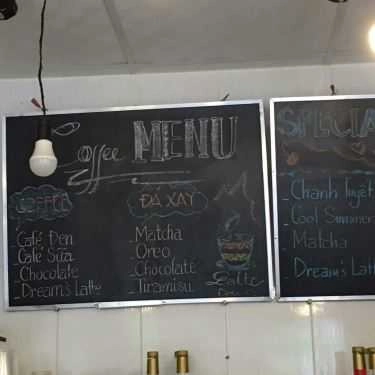 Coffee MENU
COFFEE
Café Đen
Café Sữa
Chocolate
Dream's Latte
ĐÁ XAY
Matcha
Oreo
Chocolate
Tiramisu
Latte
SPECIA
Chanh Tuyết
Cool Summer
Matcha
Dream's Latt